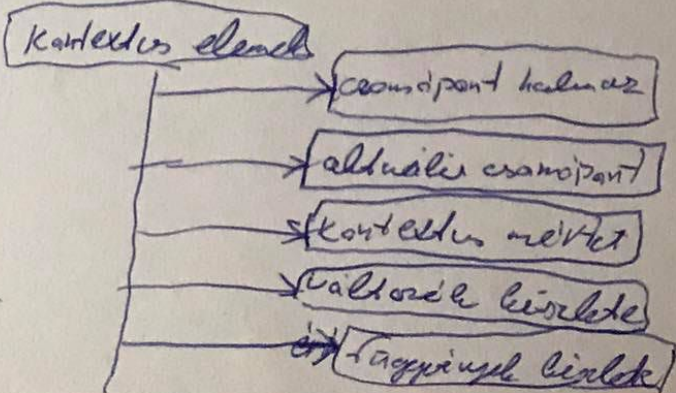 Kontextus elemek
csomópont halmaz
aktuális csomópont
kontextus méret
változók készlete
függvények készlete